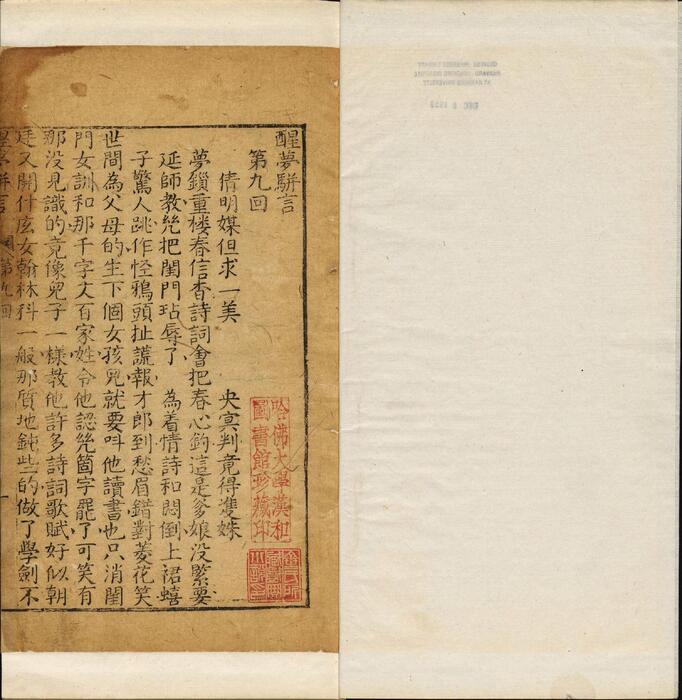 醒夢駢言
第九回
倩明媒但求一美　央冥判竟得雙姝
夢鎖重楼春信杳詩詞會把春心鉤這是爹娘没緊要
延師教㡬把閨門玷辱了　為着情詩和悶倒上裙蟢
子驚人跳作怪鴉頭扯謊報才郎到愁眉錯對菱花笑
世間為父母的生下個女孩兒就要呌他讀書也只消閨
門女訓和那千字文百家姓令他認㡬箇字罷了可笑有
那没見識的竟像兒子一樣教他許多詩詞歌賦好似朝
廷又開什庅女翰林科一般那質地鈍些的做了學劍不
醒夢駢言
第九回
一
哈佛大學漢和
圖書館珍藏印